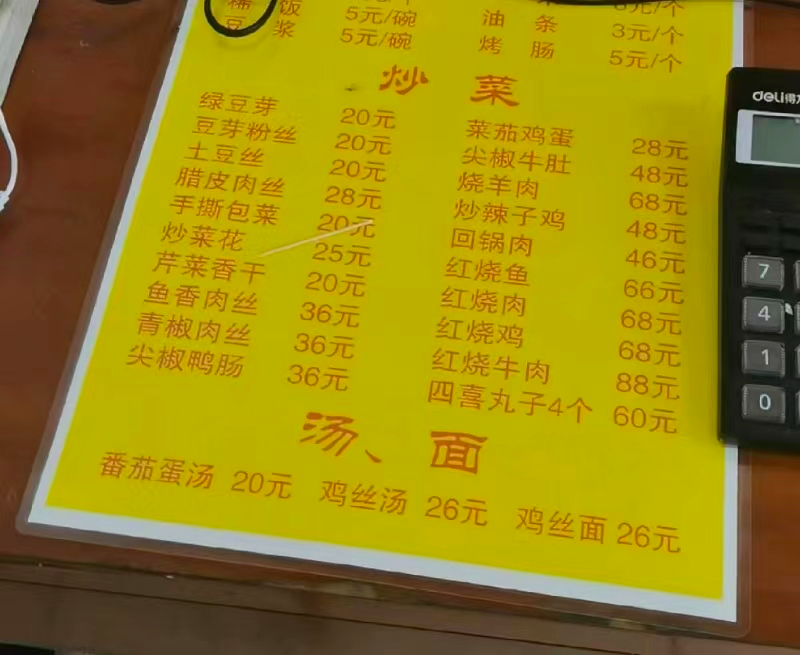 稀 饭 5元/碗 油 条 3元/个
豆 浆 5元/碗 烤 肠 5元/个
炒 菜
绿豆芽 20元 菜茄鸡蛋 28元
豆芽粉丝 20元 尖椒牛肚 48元
土豆丝 20元 烧羊肉 68元
腊皮肉丝 28元 炒辣子鸡 48元
手撕包菜 20元 回锅肉 46元
炒菜花 25元 红烧鱼 66元
芹菜香干 20元 红烧肉 68元
鱼香肉丝 36元 红烧鸡 68元
青椒肉丝 36元 红烧牛肉 88元
尖椒鸭肠 36元 四喜丸子4个 60元
汤、面
番茄蛋汤 20元 鸡丝汤 26元 鸡丝面 26元
deli得力
7
4
1
0